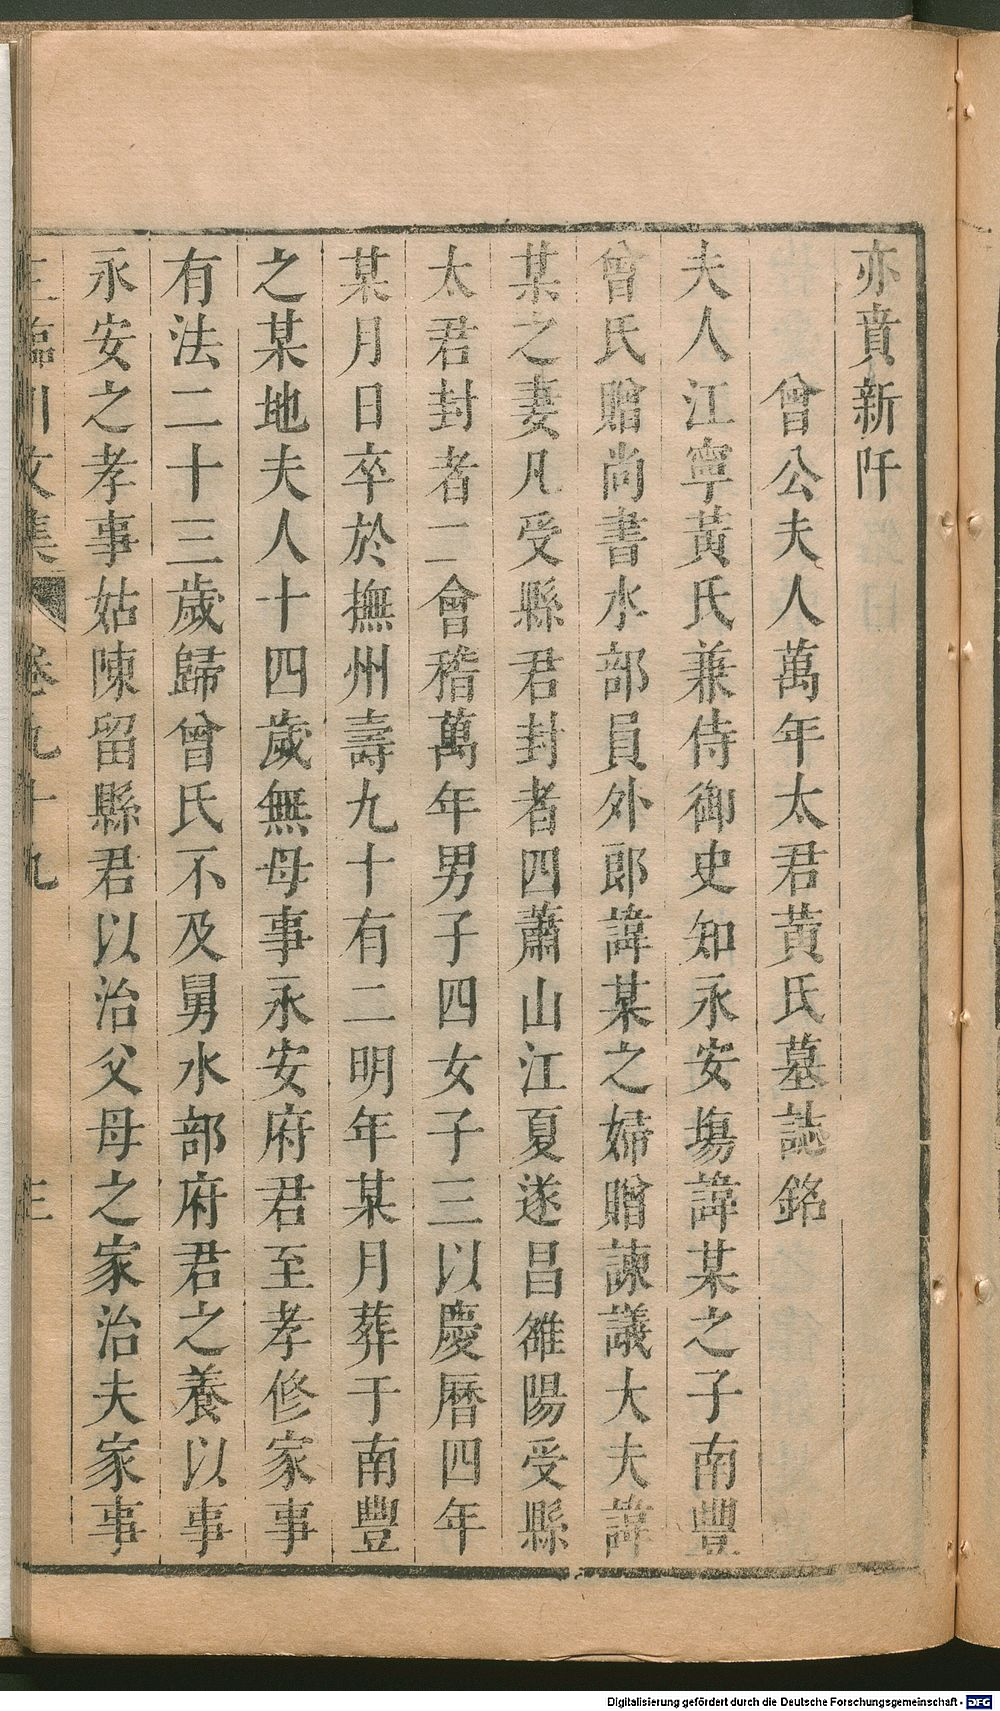 亦賁新阡
曾公夫人萬年太君黃氏墓誌銘
夫人江寧黃氏兼侍御史知永安塲諱某之子南豐
曾氏贈尚書水部員外郎諱某之婦贈諫議大夫諱
某之妻凡受縣君封者四蕭山江夏遂昌雒陽受縣
太君封者二會稽萬年男子四女子三以慶曆四年
某月日卒於撫州壽九十有二明年某月葬于南豐
之某地夫人十四歲無母事永安府君至孝修家事
有法二十三歲歸曾氏不及舅水部府君之養以事
永安之孝事姑陳留縣君以治父母之家治夫家事
王臨川文集 卷九十九 三
Digitalisierung gefördert durch die Deutsche Forschungsgemeinschaft - DFG